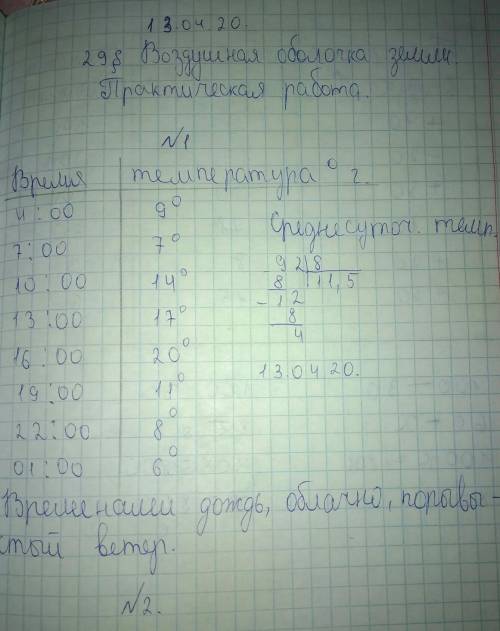 13.04.20.
29§ Воздушная оболочка земли.
Практическая работа.
№1
Время температура ° г.
4:00 9°
7:00 7°
10:00 14°
13:00 17°
16:00 20°
19:00 11°
22:00 8°
01:00 6°
Среднесуточ. темп.
92|8
8 |11,5
-12
8
4
13.04.20.
Временами дождь, облачно, порывы-
стый ветер.
№2.